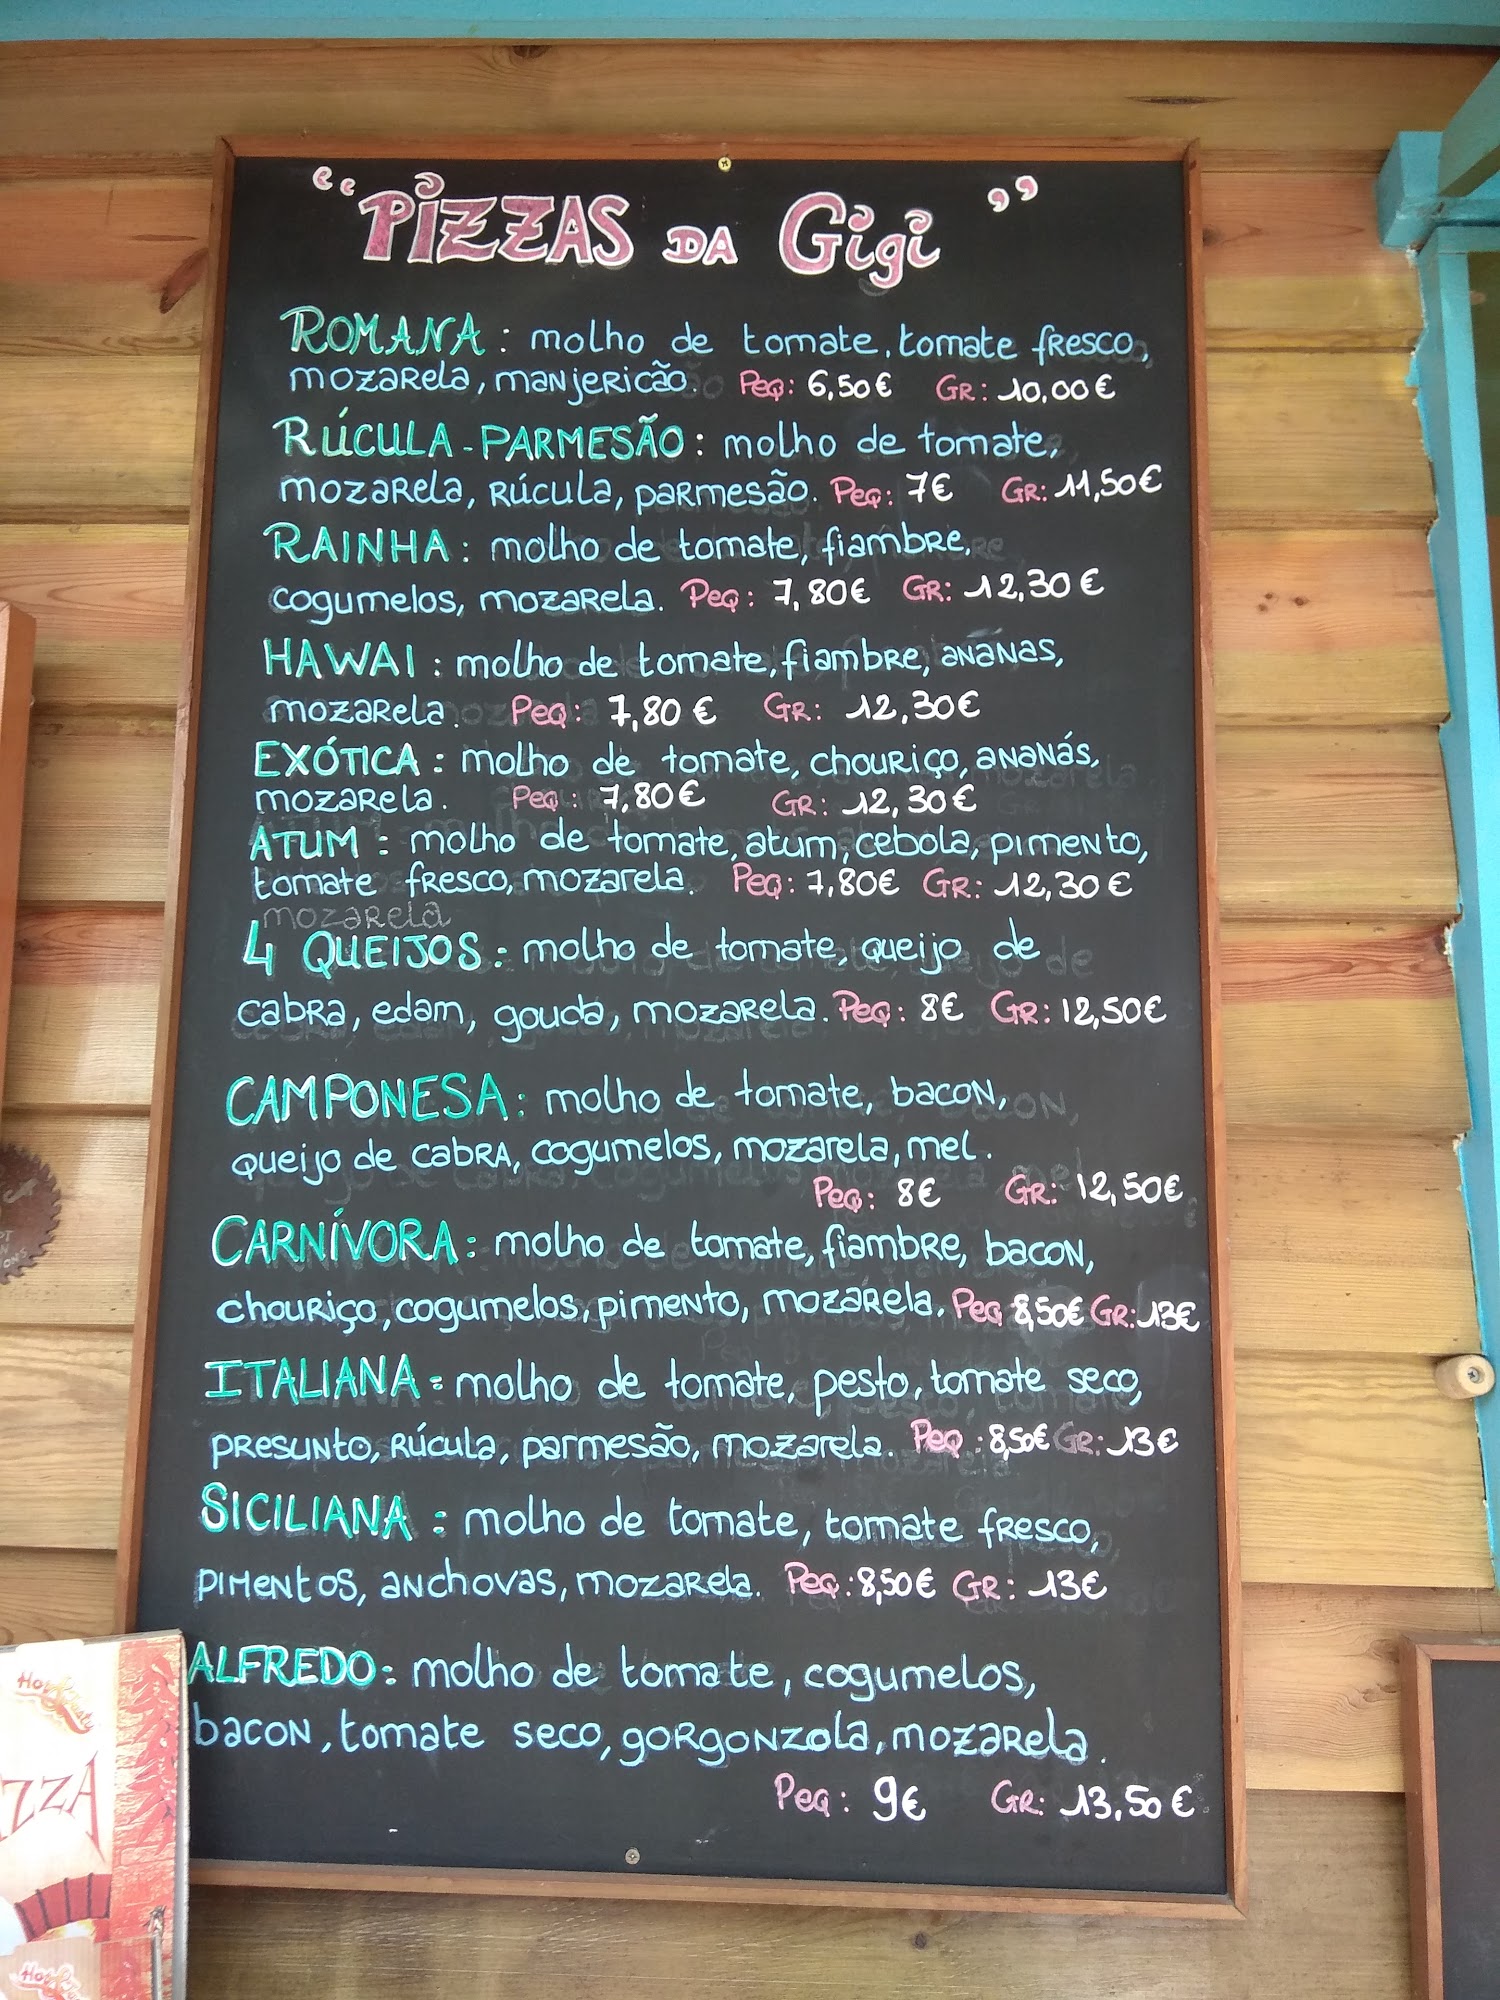 "PIZZAS DA Gigi"
ROMANA: molho de tomate, tomate fresco,
mozarela, manjericão. Peq: 6,50€ Gr: 10,00€
RÚCULA-PARMESÃO: molho de tomate,
mozarela, rúcula, parmesão. Peq: 7€ Gr: 11,50€
RAINHA: molho de tomate, fiambre,
cogumelos, mozarela. Peq: 7,80€ Gr: 12,30€
HAWAI: molho de tomate, fiambre, ananas,
mozarela. Peq: 7,80€ Gr: 12,30€
EXÓTICA: molho de tomate, chouriço, ananás,
mozarela. Peq: 7,80€ Gr: 12,30€
ATUM: molho de tomate, atum, cebola, pimento,
tomate fresco, mozarela. Peq: 7,80€ Gr: 12,30€
mozarela
4 QUEIJOS: molho de tomate, queijo de
cabra, edam, gouda, mozarela. Peq: 8€ Gr: 12,50€
CAMPONESA: molho de tomate, bacon,
queijo de cabra, cogumelos, mozarela, mel.
Peq: 8€ Gr: 12,50€
CARNÍVORA: molho de tomate, fiambre, bacon,
chouriço, cogumelos, pimento, mozarela. Peq 8,50€ Gr: 13€
ITALIANA: molho de tomate, pesto, tomate seco,
presunto, rúcula, parmesão, mozarela. Peq: 8,50€ Gr: 13€
SICILIANA: molho de tomate, tomate fresco,
pimentos, anchovas, mozarela. Peq: 8,50€ Gr: 13€
ALFREDO: molho de tomate, cogumelos,
bacon, tomate seco, gorgonzola, mozarela.
Peq: 9€ Gr: 13,50€